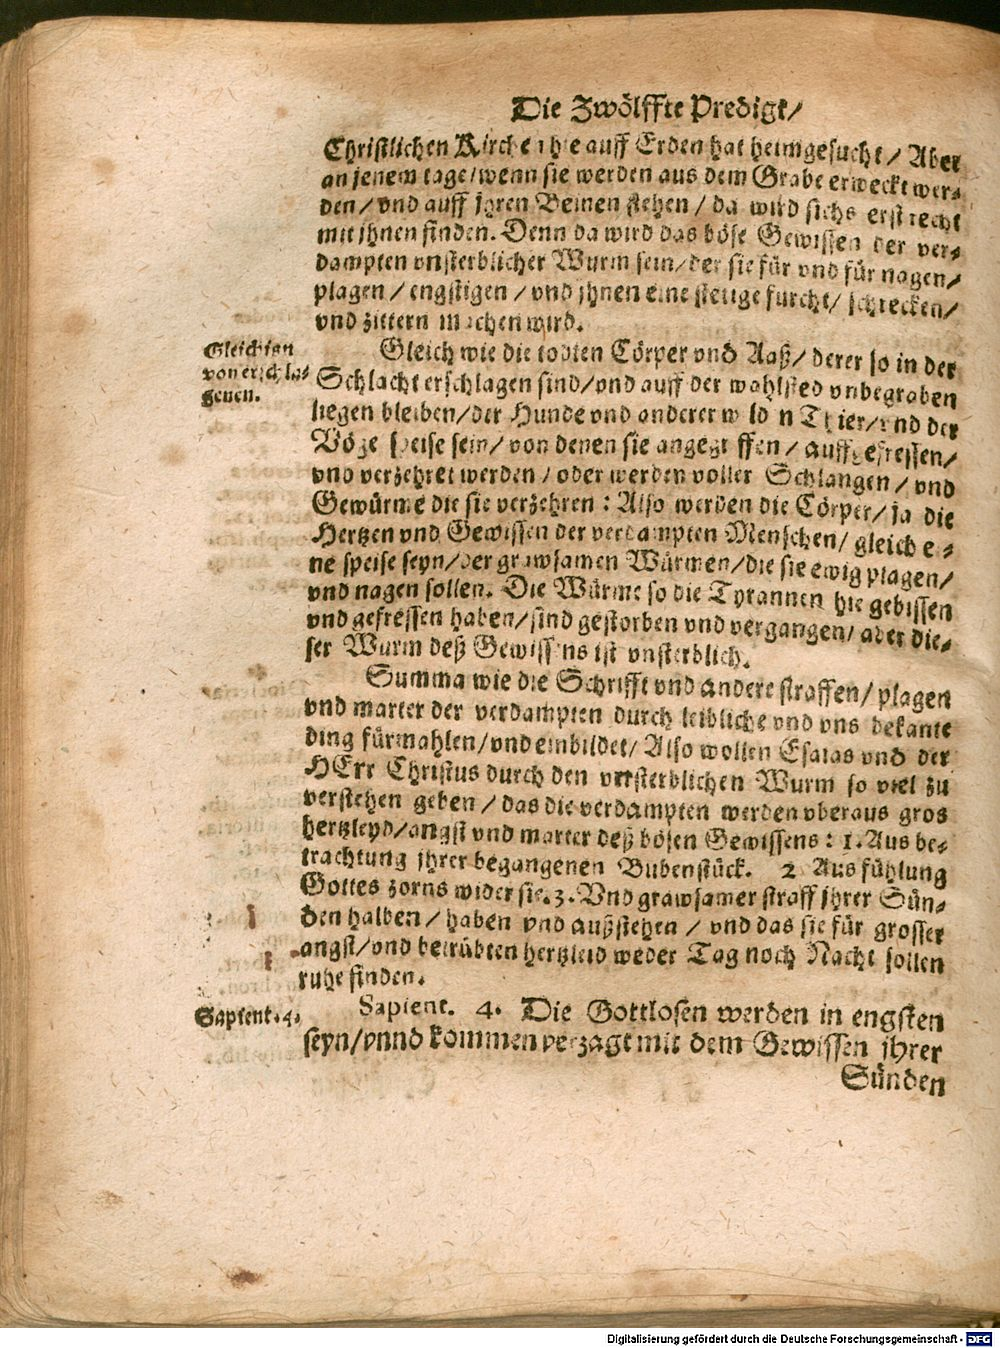 Die Zwölffte Predigt/
Christlichen Kirche ihe auff Erden hat heimgesucht/ Aber
an jenem tage/wenn sie werden aus dem Grabe erweckt wer-
den/ vnd auff jhren Beinen stehen/ da wird sichs erst recht
mit jhnen finden. Denn da wird das böse Gewissen der ver-
dampten vnsterblicher Wurm sein/der sie für vnd für nagen/
plagen/ engstigen/ vnd jhnen eine stetige furcht/ schrecken/
vnd zittern machen wird.
Gleichnis
von erschla-
genen.
Gleich wie die todten Cörper vnd Aaß/ derer so in der
Schlacht erschlagen sind/vnd auff der wahlsted vnbegraben
liegen bleiben/der Hunde vnd anderer wilden Thier/vnd der
Vögel speise sein/ von denen sie angegriffen/ auffgefressen/
vnd verzehret werden/ oder werden voller Schlangen/ vnd
Gewürme die sie verzehren: Also werden die Cörper/ ja die
Hertzen vnd Gewissen der verdampten Menschen/ gleich ei-
ne speise seyn/der grawsamen Würmen/die sie ewig plagen/
vnd nagen sollen. Die Würme so die Tyrannen hie gebissen
vnd gefressen haben/sind gestorben vnd vergangen/ aber die-
ser Wurm deß Gewissens ist vnsterblich.
Summa wie die Schrifft vnd andere straffen/ plagen
vnd marter der verdampten durch leibliche vnd vns bekante
ding fürmahlen/vnd einbildet/ Also wollen Esaias vnd der
HErr Christus durch den vnsterblichen Wurm so viel zu
verstehen geben/ das die verdampten werden vberaus gros
hertzleyd/angst vnd marter deß bösen Gewissens: 1. Aus be-
trachtung jhrer begangenen Bubenstück. 2 Aus fühlung
Gottes zorns wider sie. 3. Vnd grawsamer straff jhrer Sün-
den halben/ haben vnd außstehen/ vnd das sie für grosser
angst/vnd betrübten hertzleid weder Tag noch Nacht sollen
ruhe finden.
Sapient. 4.
Sapient. 4. Die Gottlosen werden in engsten
seyn/vnnd kommen verzagt mit dem Gewissen jhrer
Sünden
Digitalisierung gefördert durch die Deutsche Forschungsgemeinschaft - DFG